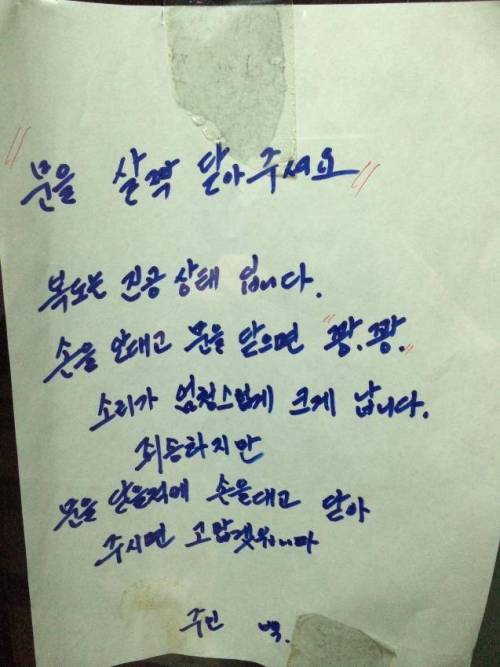 "문을 살짝 닫아 주세요"
복도는 진공 상태 입니다.
손을 안대고 문을 닫으면 "쾅.쾅."
소리가 엄청스럽게 크게 납니다.
죄송하지만
문을 닫을적에 손을대고 닫아
주시면 고맙겠읍니다
주민 백.